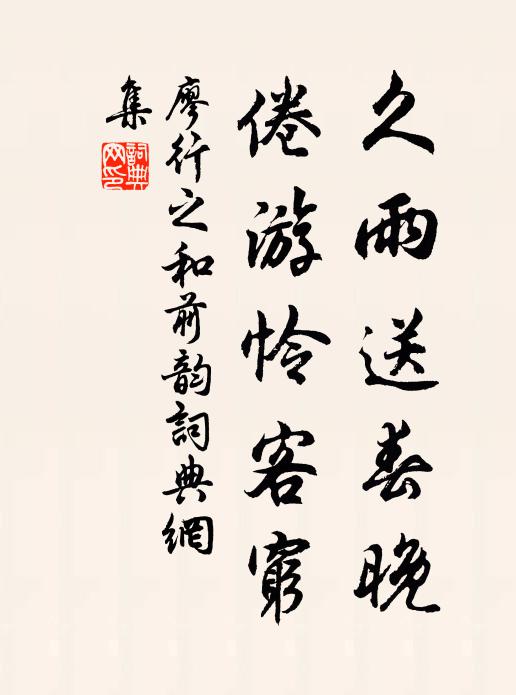 久雨送春晚
倦游怜客窮
廖行之和前韵詞典網
集
詞典网印